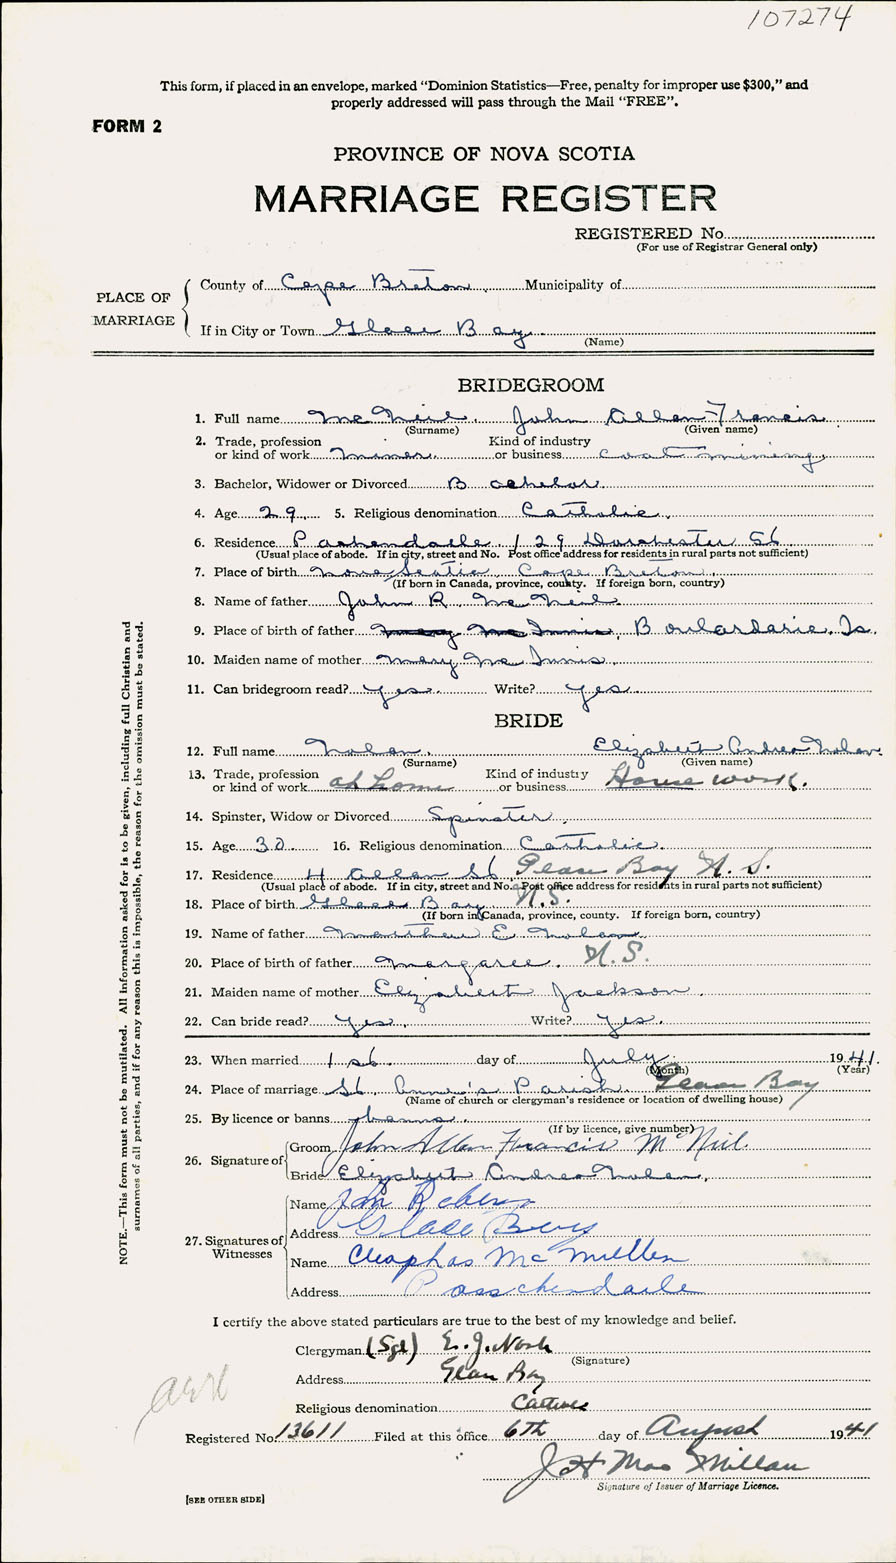 107274
This form, if placed in an envelope, marked "Dominion Statistics—Free, penalty for improper use $300," and
properly addressed will pass through the Mail "FREE".
FORM 2
PROVINCE OF NOVA SCOTIA
MARRIAGE REGISTER
REGISTERED No.
(For use of Registrar General only)
PLACE OF MARRIAGE
County of Cape Breton Municipality of
If in City or Town Glace Bay
(Name)
BRIDEGROOM
1. Full name McNeil, John Allan Francis
(Surname) (Given name)
2. Trade, profession or kind of work Miner Kind of industry or business coal mining
3. Bachelor, Widower or Divorced Bachelor
4. Age 29 5. Religious denomination Catholic
6. Residence 129 Dorchester St
(Usual place of abode. If in city, street and No. Post office address for residents in rural parts not sufficient)
7. Place of birth Nova Scotia Cape Breton
(If born in Canada, province, county. If foreign born, country)
8. Name of father John R. McNeil
9. Place of birth of father Mary McInnis, Boulardarie, Is.
10. Maiden name of mother Mary McInnis
11. Can bridegroom read? yes Write? yes
BRIDE
12. Full name Nolan, Elizabeth Andrea Nolan
(Surname) (Given name)
13. Trade, profession or kind of work at home Kind of industry or business House work.
14. Spinster, Widow or Divorced Spinster
15. Age 30 16. Religious denomination Catholic.
17. Residence 4 Allan St Glace Bay N.S.
(Usual place of abode. If in city, street and No. Post office address for residents in rural parts not sufficient)
18. Place of birth Glace Bay N.S.
(If born in Canada, province, county. If foreign born, country)
19. Name of father Matthew E. Nolan
20. Place of birth of father Margaree. N.S.
21. Maiden name of mother Elizabeth Jackson.
22. Can bride read? yes. Write? yes.
23. When married 1st day of July 1941.
(Month) (Year)
24. Place of marriage St. Anne's Parish Glace Bay
(Name of church or clergyman's residence or location of dwelling house)
25. By licence or banns banns
(If by licence, give number)
26. Signature of
Groom John Allan Francis McNeil
Bride Elizabeth Andrea Nolan.
27. Signatures of Witnesses
Name
Address Glace Bay
Name Cleophas McMullen
Address Passchendaele
I certify the above stated particulars are true to the best of my knowledge and belief.
Clergyman (Sgd) E. J. Nash
(Signature)
Address Glace Bay
Religious denomination Catholic
Registered No. 13611 Filed at this office 6th day of August 1941
J H MacMillan
Signature of Issuer of Marriage Licence.
[SEE OTHER SIDE]
NOTE.—This form must not be mutilated. All information asked for is to be given, including full Christian and
surnames of all parties, and if for any reason this is impossible, the reason for the omission must be stated.